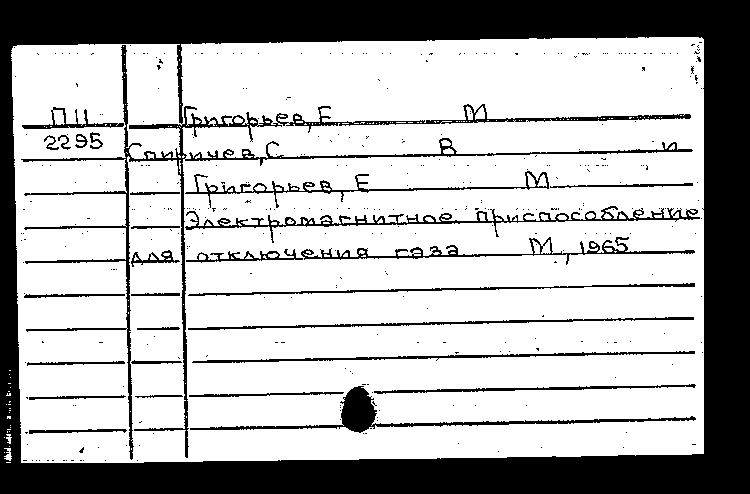 П11 Григорьев, Е М
2295
Спиричев, С В и
Григорьев, Е М
Электромагнитное приспособление
для отключения газа М, 1965